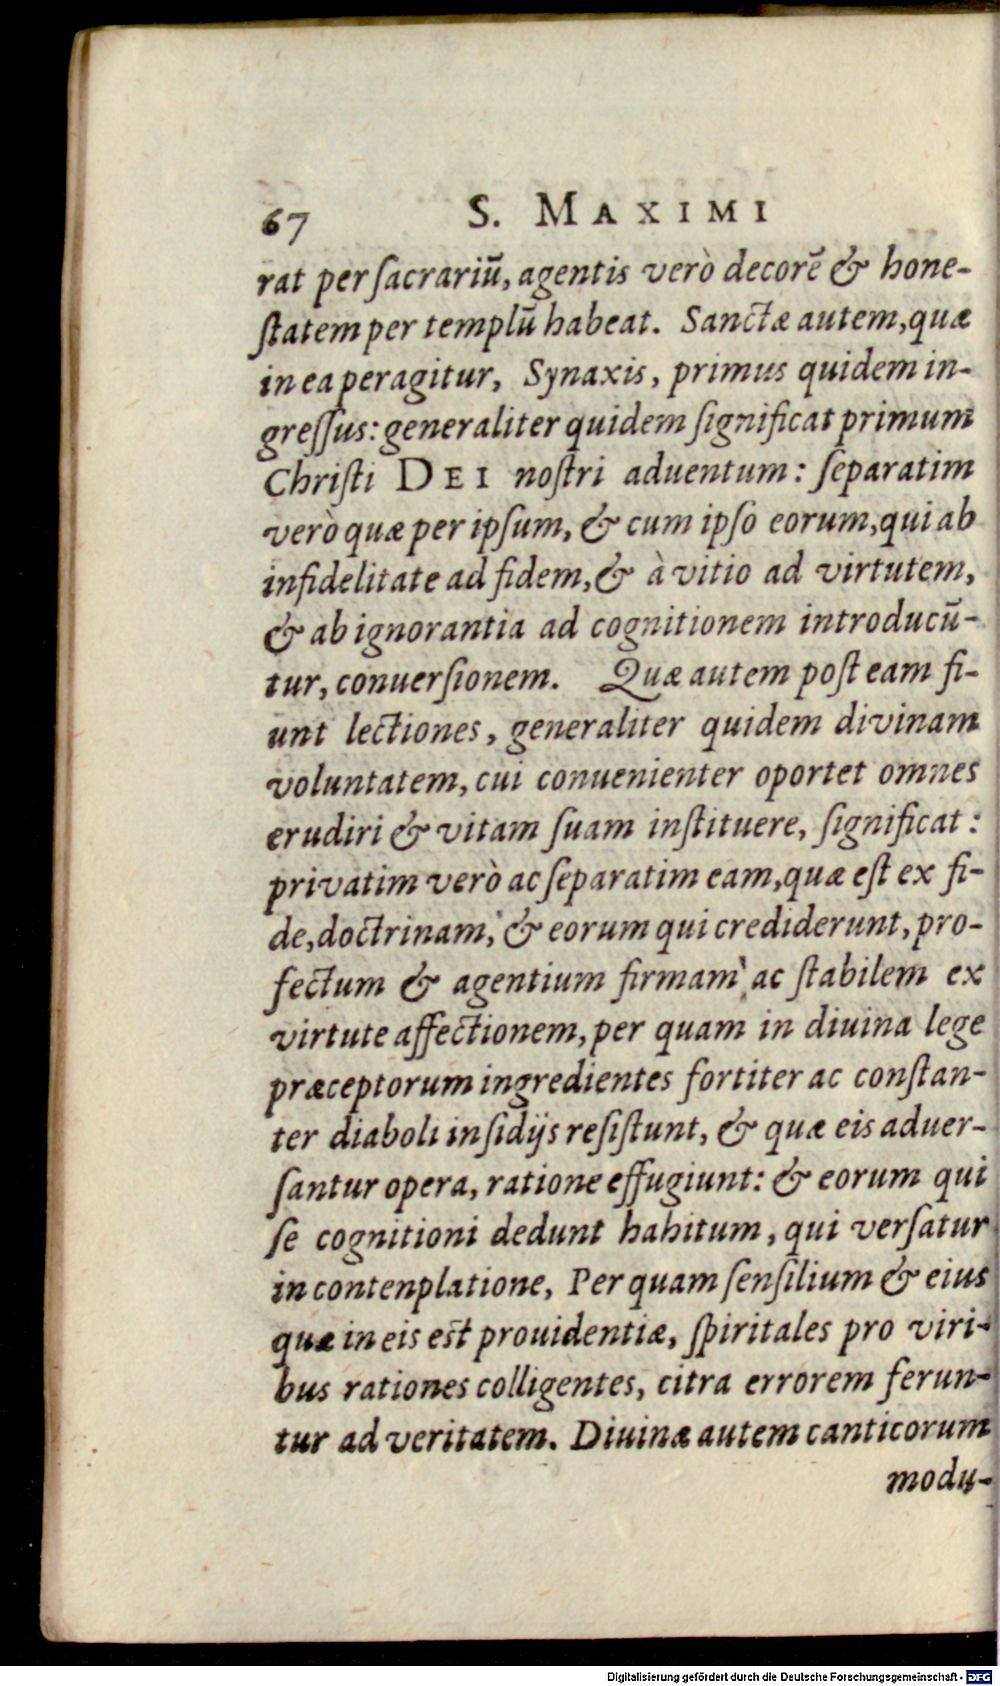 67 S. MAXIMI
rat per sacrariū, agentis verò decorē & hone-
statem per templū habeat. Sanctæ autem, quæ
in ea peragitur, Synaxis, primus quidem in-
gressus: generaliter quidem significat primum
Christi DEI nostri aduentum: separatim
verò quæ per ipsum, & cum ipso eorum, qui ab
infidelitate ad fidem, & à vitio ad virtutem,
& ab ignorantia ad cognitionem introducū-
tur, conuersionem. Quæ autem post eam fi-
unt lectiones, generaliter quidem divinam
voluntatem, cui conuenienter oportet omnes
erudiri & vitam suam instituere, significat:
privatim verò ac separatim eam, quæ est ex fi-
de, doctrinam, & eorum qui crediderunt, pro-
fectum & agentium firmam ac stabilem ex
virtute affectionem, per quam in diuina lege
præceptorum ingredientes fortiter ac constan-
ter diaboli insidijs resistunt, & quæ eis aduer-
santur opera, ratione effugiunt: & eorum qui
se cognitioni dedunt hahitum, qui versatur
in contenplatione, Per quam sensilium & eius
quæ in eis est prouidentiæ, spiritales pro viri-
bus rationes colligentes, citra errorem ferun-
tur ad veritatem. Diuinæ autem canticorum
modu-
Digitalisierung gefördert durch die Deutsche Forschungsgemeinschaft - DFG